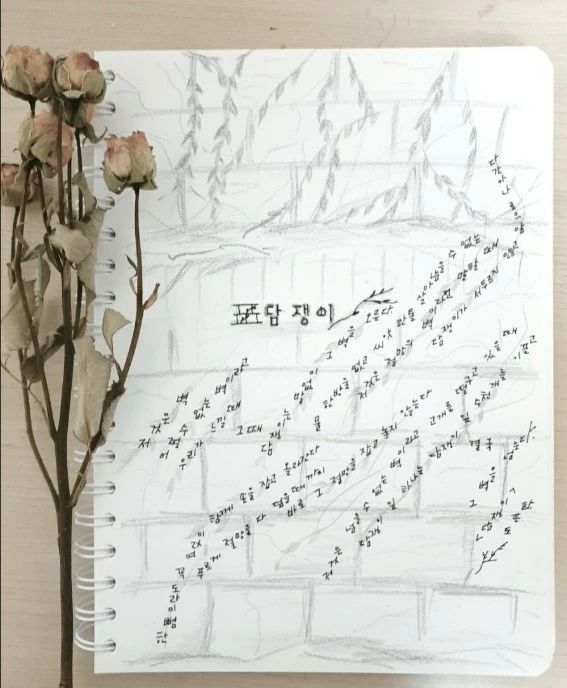 담쟁이
저것은 벽
어쩔 수 없는 벽이라고
우리가 느낄 때
그때
담쟁이는 말없이
그 벽을 오른다
물 한방울 없고 씨앗 한톨 살아남을 수 없는
저것은 절망의 벽이라고 말할 때
담쟁이가 서두르지 않고
앞으로 나아간다
한뼘이라도
꼭 여럿이 함께 손을 잡고 올라간다
푸르게 절망을 다 덮을 때까지
바로 그 절망을 잡고 놓지 않는다
저것은 넘을 수 없는 벽이라고 고개를 떨구고 있을 때
담쟁이 잎 하나는 담쟁이 잎 수천개를 이끌고
결국 그 벽을 넘는다.
<담쟁이>